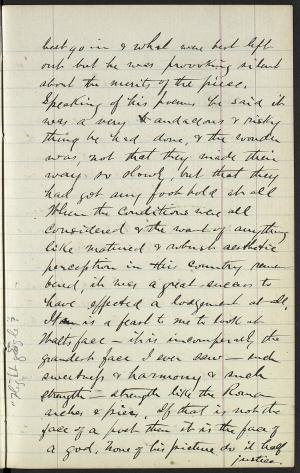 best go in & what were best left
out but he was provoking silent
about the merits of the piece.
Speaking of his poems he said it
was a very audacious & risky
thing he had done, & the wonder
was, not that they made their
way so slowly, but that they
had got any foothold at all
When the conditions were all
considered & the want of anything
like matured & robust aesthetic
perception in this country remem-
bered, it was a great success to
have effected a lodgement at all.
It is a feast to me to look at
Walts face — it is incomparable, the
grandest face I ever saw — such
sweetness & harmony & such
strength — strength like the Roman
arches & piers. If that is not the
face of a poet then it is the face of
a god. None of his pictures do it half
justice.